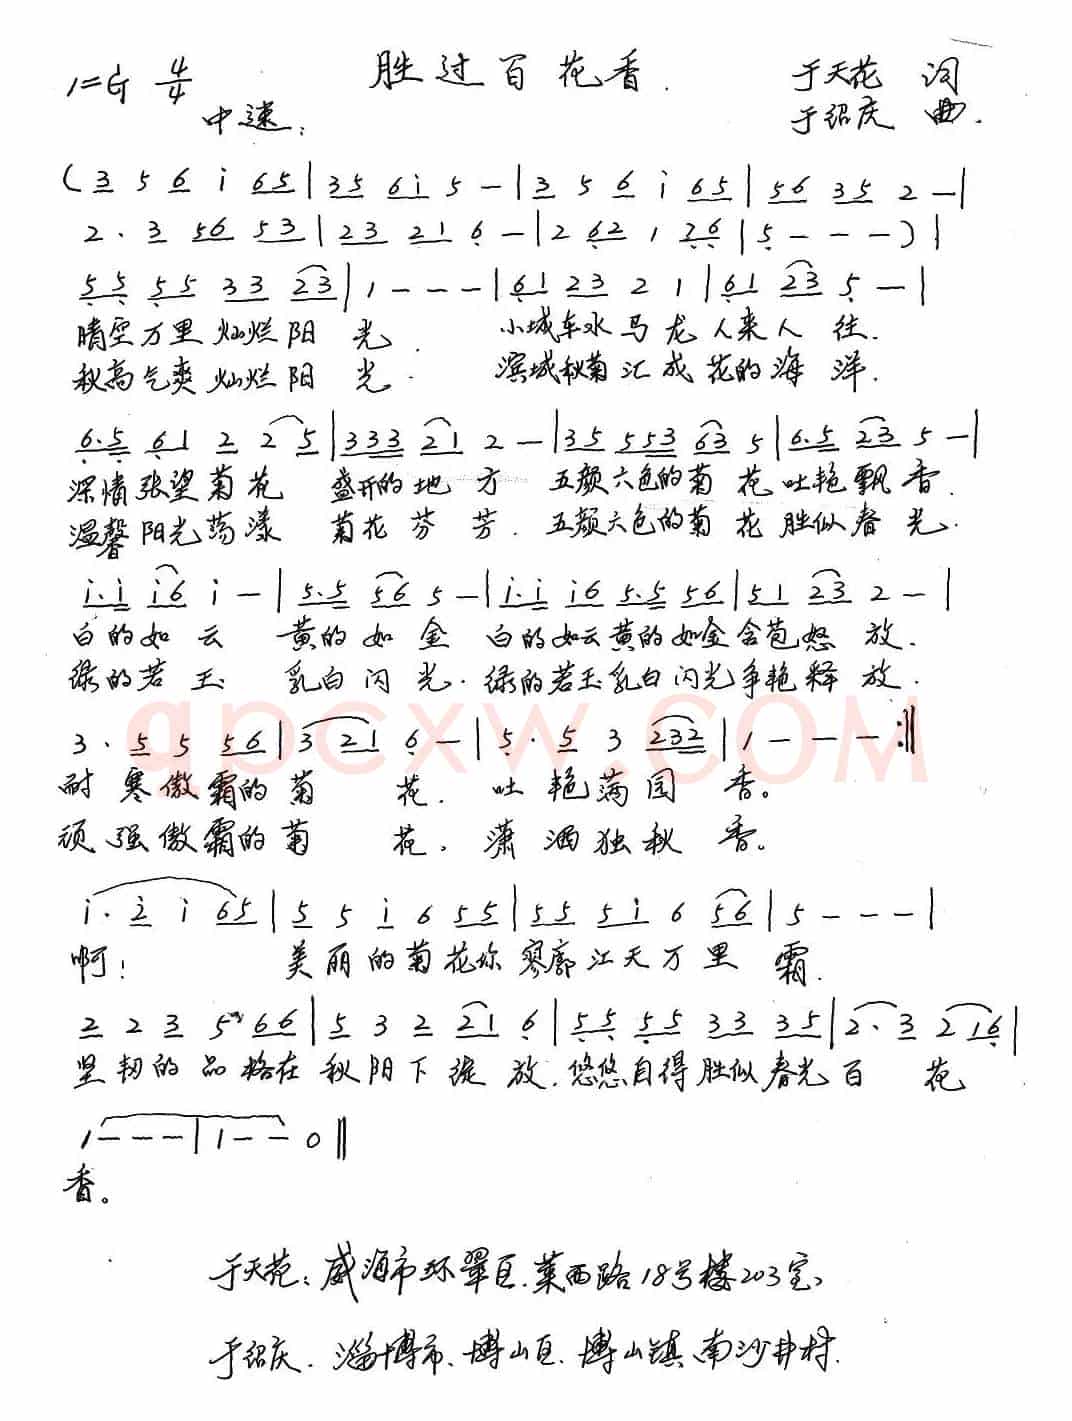 1=G 4/4 胜过百花香. 于天花 词
中速: 于绍庆 曲.
(3 5 6 i 65|35 6i 5 -|3 5 6 i 65|56 35 2 -|
2. 3 56 53|23 21 6 -|2 62 1 26|5 - - -)|
55 55 33 23|1 - - -|61 23 2 1|61 23 5 -|
晴空万里灿烂阳 光. 小城车水马龙人来人 往.
秋高气爽灿烂阳 光. 滨城秋菊汇成花的海 洋.
6.5 61 2 2 5|333 21 2 -|35 553 63 5|6.5 23 5 -|
深情张望菊花 盛开的地 方 五颜六色的菊 花吐艳飘香.
温馨阳光荡漾 菊花芬 芳. 五颜六色的菊 花胜似春光.
i.i i6 i -|5.5 56 5 -|i.i i6 5.5 56|51 23 2 -|
白的如云 黄的如金 白的如云黄的如金含苞怒 放.
绿的若玉 乳白闪光. 绿的若玉乳白闪光争艳释 放.
qpcxw.COM
3. 5 5 56|3 21 6 -|5. 5 3 232|1 - - - :||
耐寒傲霜的菊 花. 吐艳满园 香。
顽强傲霜的菊 花. 潇洒独秋 香。
i. 2 i 65|5 5 i 6 55|55 5i 6 56|5 - - -|
啊! 美丽的菊花你寥廓江天万里 霜.
2 2 3 5 66|5 3 2 21 6|55 55 33 35|2. 3 2 16|
坚韧的品格在秋阳下绽 放. 悠悠自得胜似春光百 花
1 - - -|1 - - 0||
香。
于天花: 威海市环翠区.莱西路18号楼203室
于绍庆. 淄博市、博山区.博山镇.南沙井村.